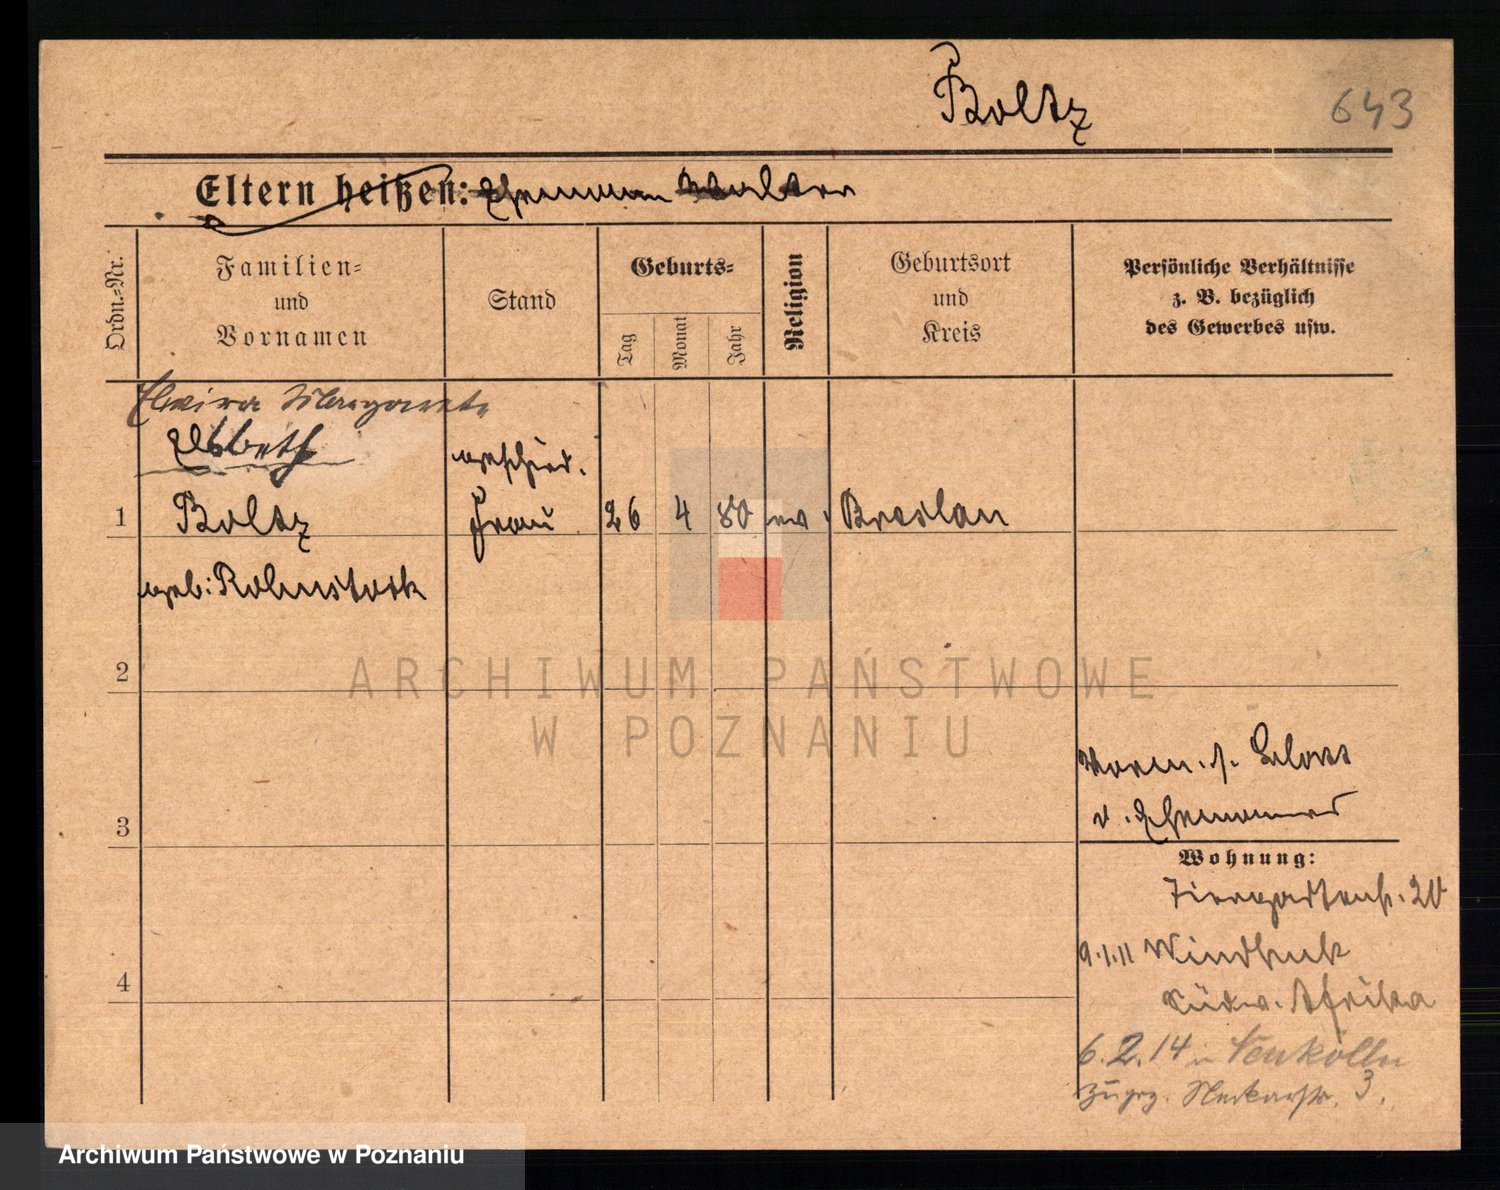 Boltz
643
Eltern heißen: Ehemann Walter
Ordn.-Nr.
Familien-
und
Vornamen
Stand
Geburts-
Tag
Monat
Jahr
Religion
Geburtsort
und
Kreis
Persönliche Verhältnisse
z. B. bezüglich
des Gewerbes usw.
Elwira Margarete
Elsbeth
1
Boltz
geb: Rohnstock
geschied.
Frau
26
4
80
ev.
Breslau
2
3
4
Verm. s.
d. Ehemannes
Wohnung:
Tiergartenstr. 20
9.1.11 Windhuk
Südw. Afrika
6.2.14 in Neukölln
zugez. Neckarstr. 3.
ARCHIWUM PAŃSTWOWE
W POZNANIU
Archiwum Państwowe w Poznaniu